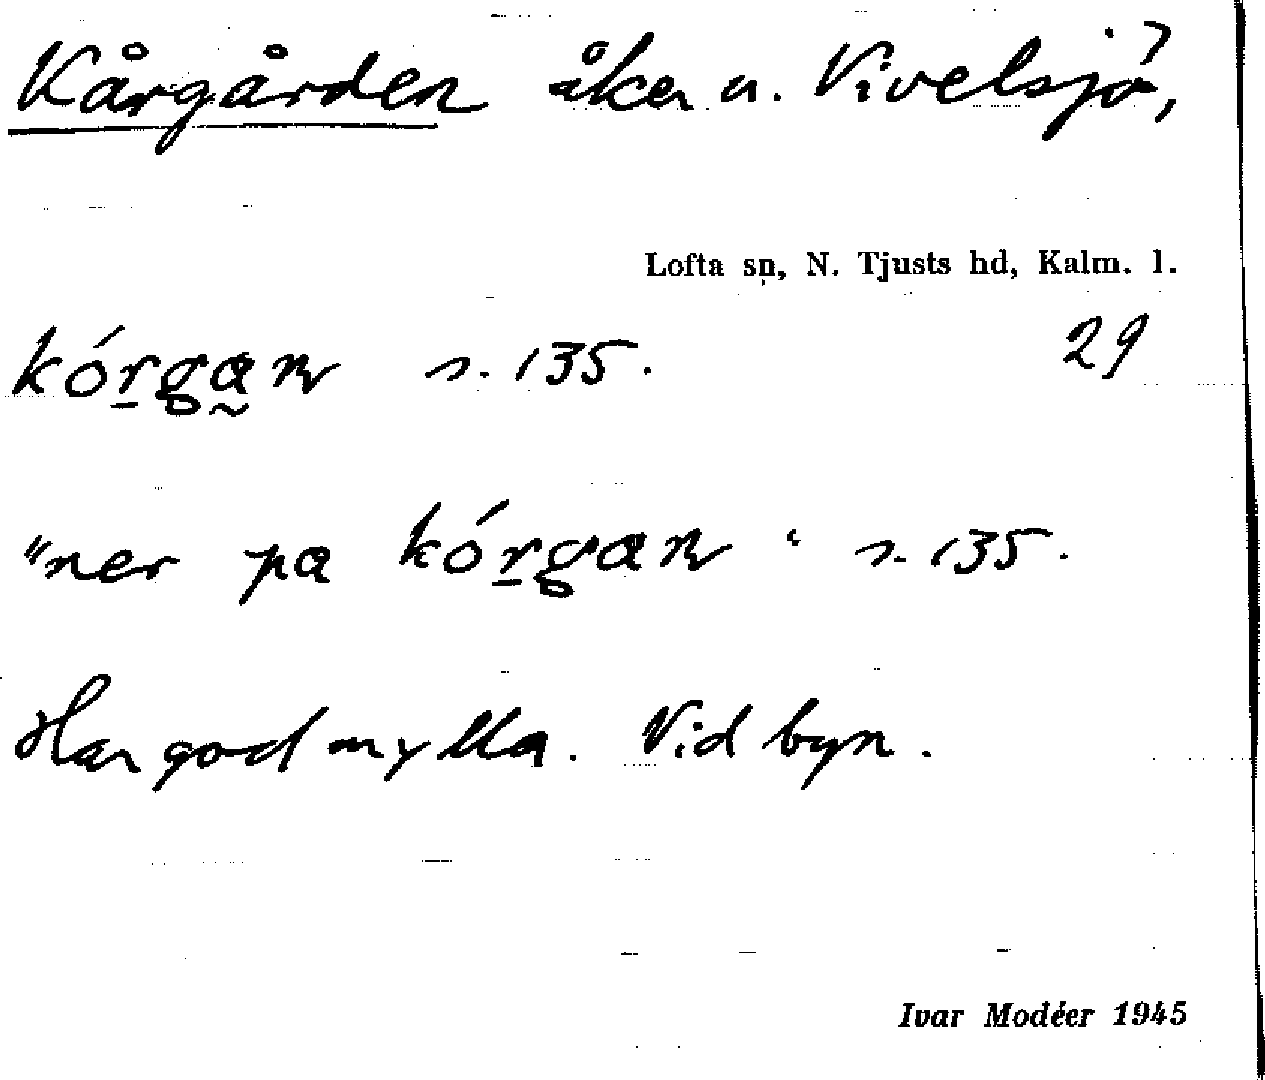 Kårgården åker u. Vivelsjö,
Lofta sn, N. Tjusts hd, Kalm. l.
kórgan s. 135. 29
"ner pa kórgan" s. 135.
Har god mylla. Vid byn.
Ivar Modéer 1945